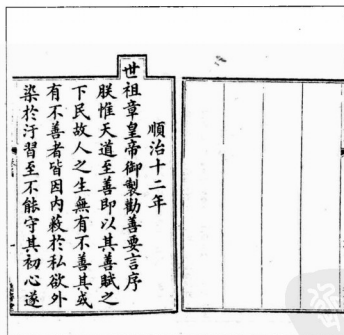 順治十二年
世祖章皇帝御製勸善要言序
朕惟天道至善即以其善賦之
下民故人之生無有不善其或
有不善者皆因内蔽於私欲外
染於汙習至不能守其初心遂